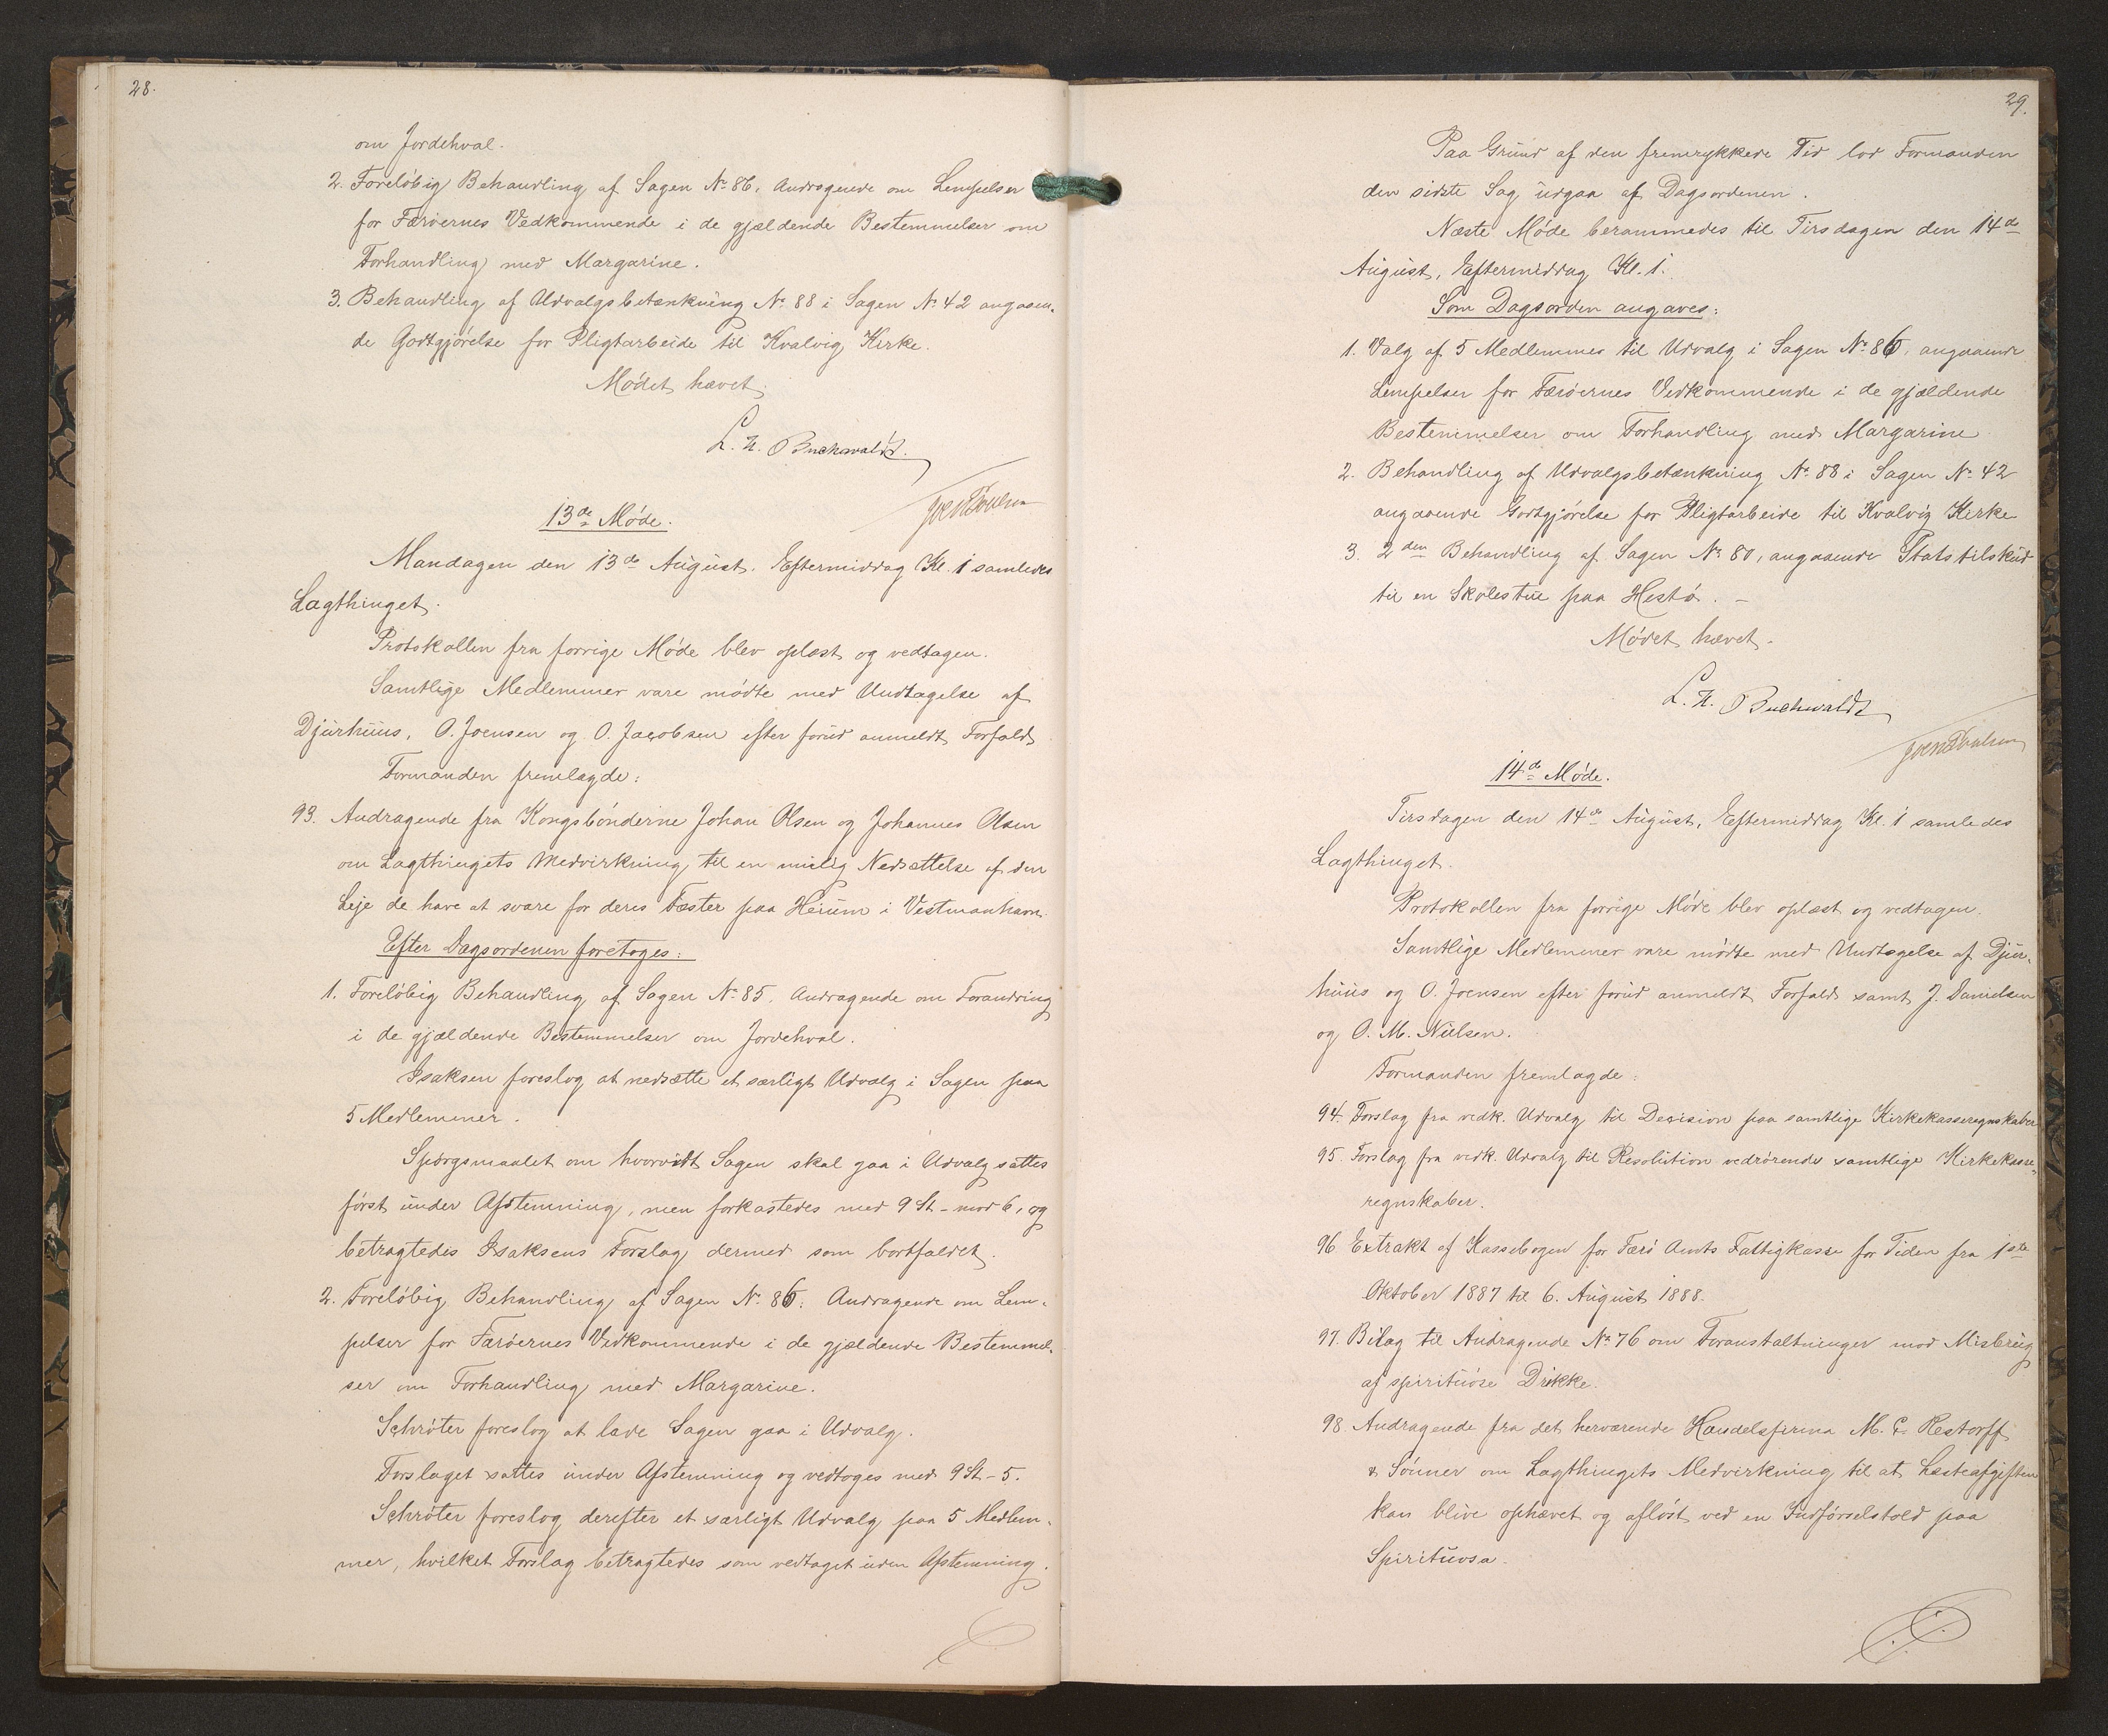 28.
om Jordehval.
2. Foreløbig Behandling af Sagen No. 86. Andragende om Lempelser
for Færøernes Vedkommende i de gjældende Bestemmelser om
Forhandling med Margarine.
3. Behandling af Udvalgsbetænkning No. 88 i Sagen No. 42 angaaen-
de Godtgjørelse for Pligtarbeide til Kvalvig Kirke.
Mødet hævet.
L. H. Buchwaldt.
Joen Poulsen
13de Møde.
Mandagen den 13de August, Eftermiddag Kl. 1 samledes
Lagthinget.
Protokollen fra forrige Møde blev oplæst og vedtagen.
Samtlige Medlemmer vare mødte med Undtagelse af
Djurhuus, O. Joensen og O. Jacobsen efter forud anmeldt Forfald.
Formanden fremlagde:
93. Andragende fra Kongsbønderne Johan Olsen og Johannes Olsen
om Lagthingets Medvirkning til en mulig Nedsættelse af den
Leje de have at svare for deres Fæster paa Heium i Vestmanhavn.
Efter Dagsordenen foretoges:
1. Foreløbig Behandling af Sagen No. 85. Andragende om Forandring
i de gjældende Bestemmelser om Jordehval.
Isaksen foreslog at nedsætte et særligt Udvalg i Sagen paa
5 Medlemmer.
Spørgsmaalet om hvorvidt Sagen skal gaa i Udvalg sattes
først under Afstemning, men forkastedes med 9 St. mod 6, og
betragtedes Isaksens Forslag dermed som bortfaldet.
2. Foreløbig Behandling af Sagen No. 86. Andragende om Lem-
pelser for Færøernes Vedkommende i de gjældende Bestemmel-
ser om Forhandling med Margarine.
Schrøter foreslog at lade Sagen gaa i Udvalg.
Forslaget sattes under Afstemning og vedtoges med 9 St. - 5.
Schrøter foreslog derefter et særligt Udvalg paa 5 Medlem-
mer, hvilket Forslag betragtedes som vedtaget uden Afstemning.
29.
Paa Grund af den fremrykkede Tid lod Formanden
den sidste Sag udgaa af Dagsordenen.
Næste Møde berammedes til Tirsdagen den 14de
August, Eftermiddag Kl. 1.
Som Dagsorden angaves:
1. Valg af 5 Medlemmer til Udvalg i Sagen No. 86, angaaende
Lempelser for Færøernes Vedkommende i de gjældende
Bestemmelser om Forhandling med Margarine
2. Behandling af Udvalgsbetænkning No. 88 i Sagen No. 42
angaaende Godtgjørelse for Pligtarbeide til Kvalvig Kirke
3. 2den Behandling af Sagen No. 80, angaaende Statstilskud
til en Skolestue paa Hestø. -
Mødet hævet.
L. H. Buchwaldt
Joen Poulsen
14de Møde.
Tirsdagen den 14de August, Eftermiddag Kl. 1 samledes
Lagthinget.
Protokollen fra forrige Møde blev oplæst og vedtagen.
Samtlige Medlemmer vare mødte med Undtagelse af Djur-
huus og O. Joensen efter forud anmeldt Forfald samt J. Danielsen
og O. M. Nielsen.
Formanden fremlagde:
94. Forslag fra vedk. Udvalg til Decision paa samtlige Kirkekasseregnskaber
95. Forslag fra vedk. Udvalg til Resolution vedrørende samtlige Kirkekasse-
regnskaber.
96 Extrakt af Kassebogen for Færø Amts Fattigkasse for Tiden fra 1ste
Oktober 1887 til 6. August 1888.
97. Bilag til Andragende No. 76 om Foranstaltninger mod Misbrug
af spirituøse Drikke.
98 Andragende fra det herværende Handelsfirma M. C. Restorff
& Sønner om Lagthingets Medvirkning til at Læsteafgiften
kan blive ophævet og afløst ved en Indførselstold paa
Spirituosa.